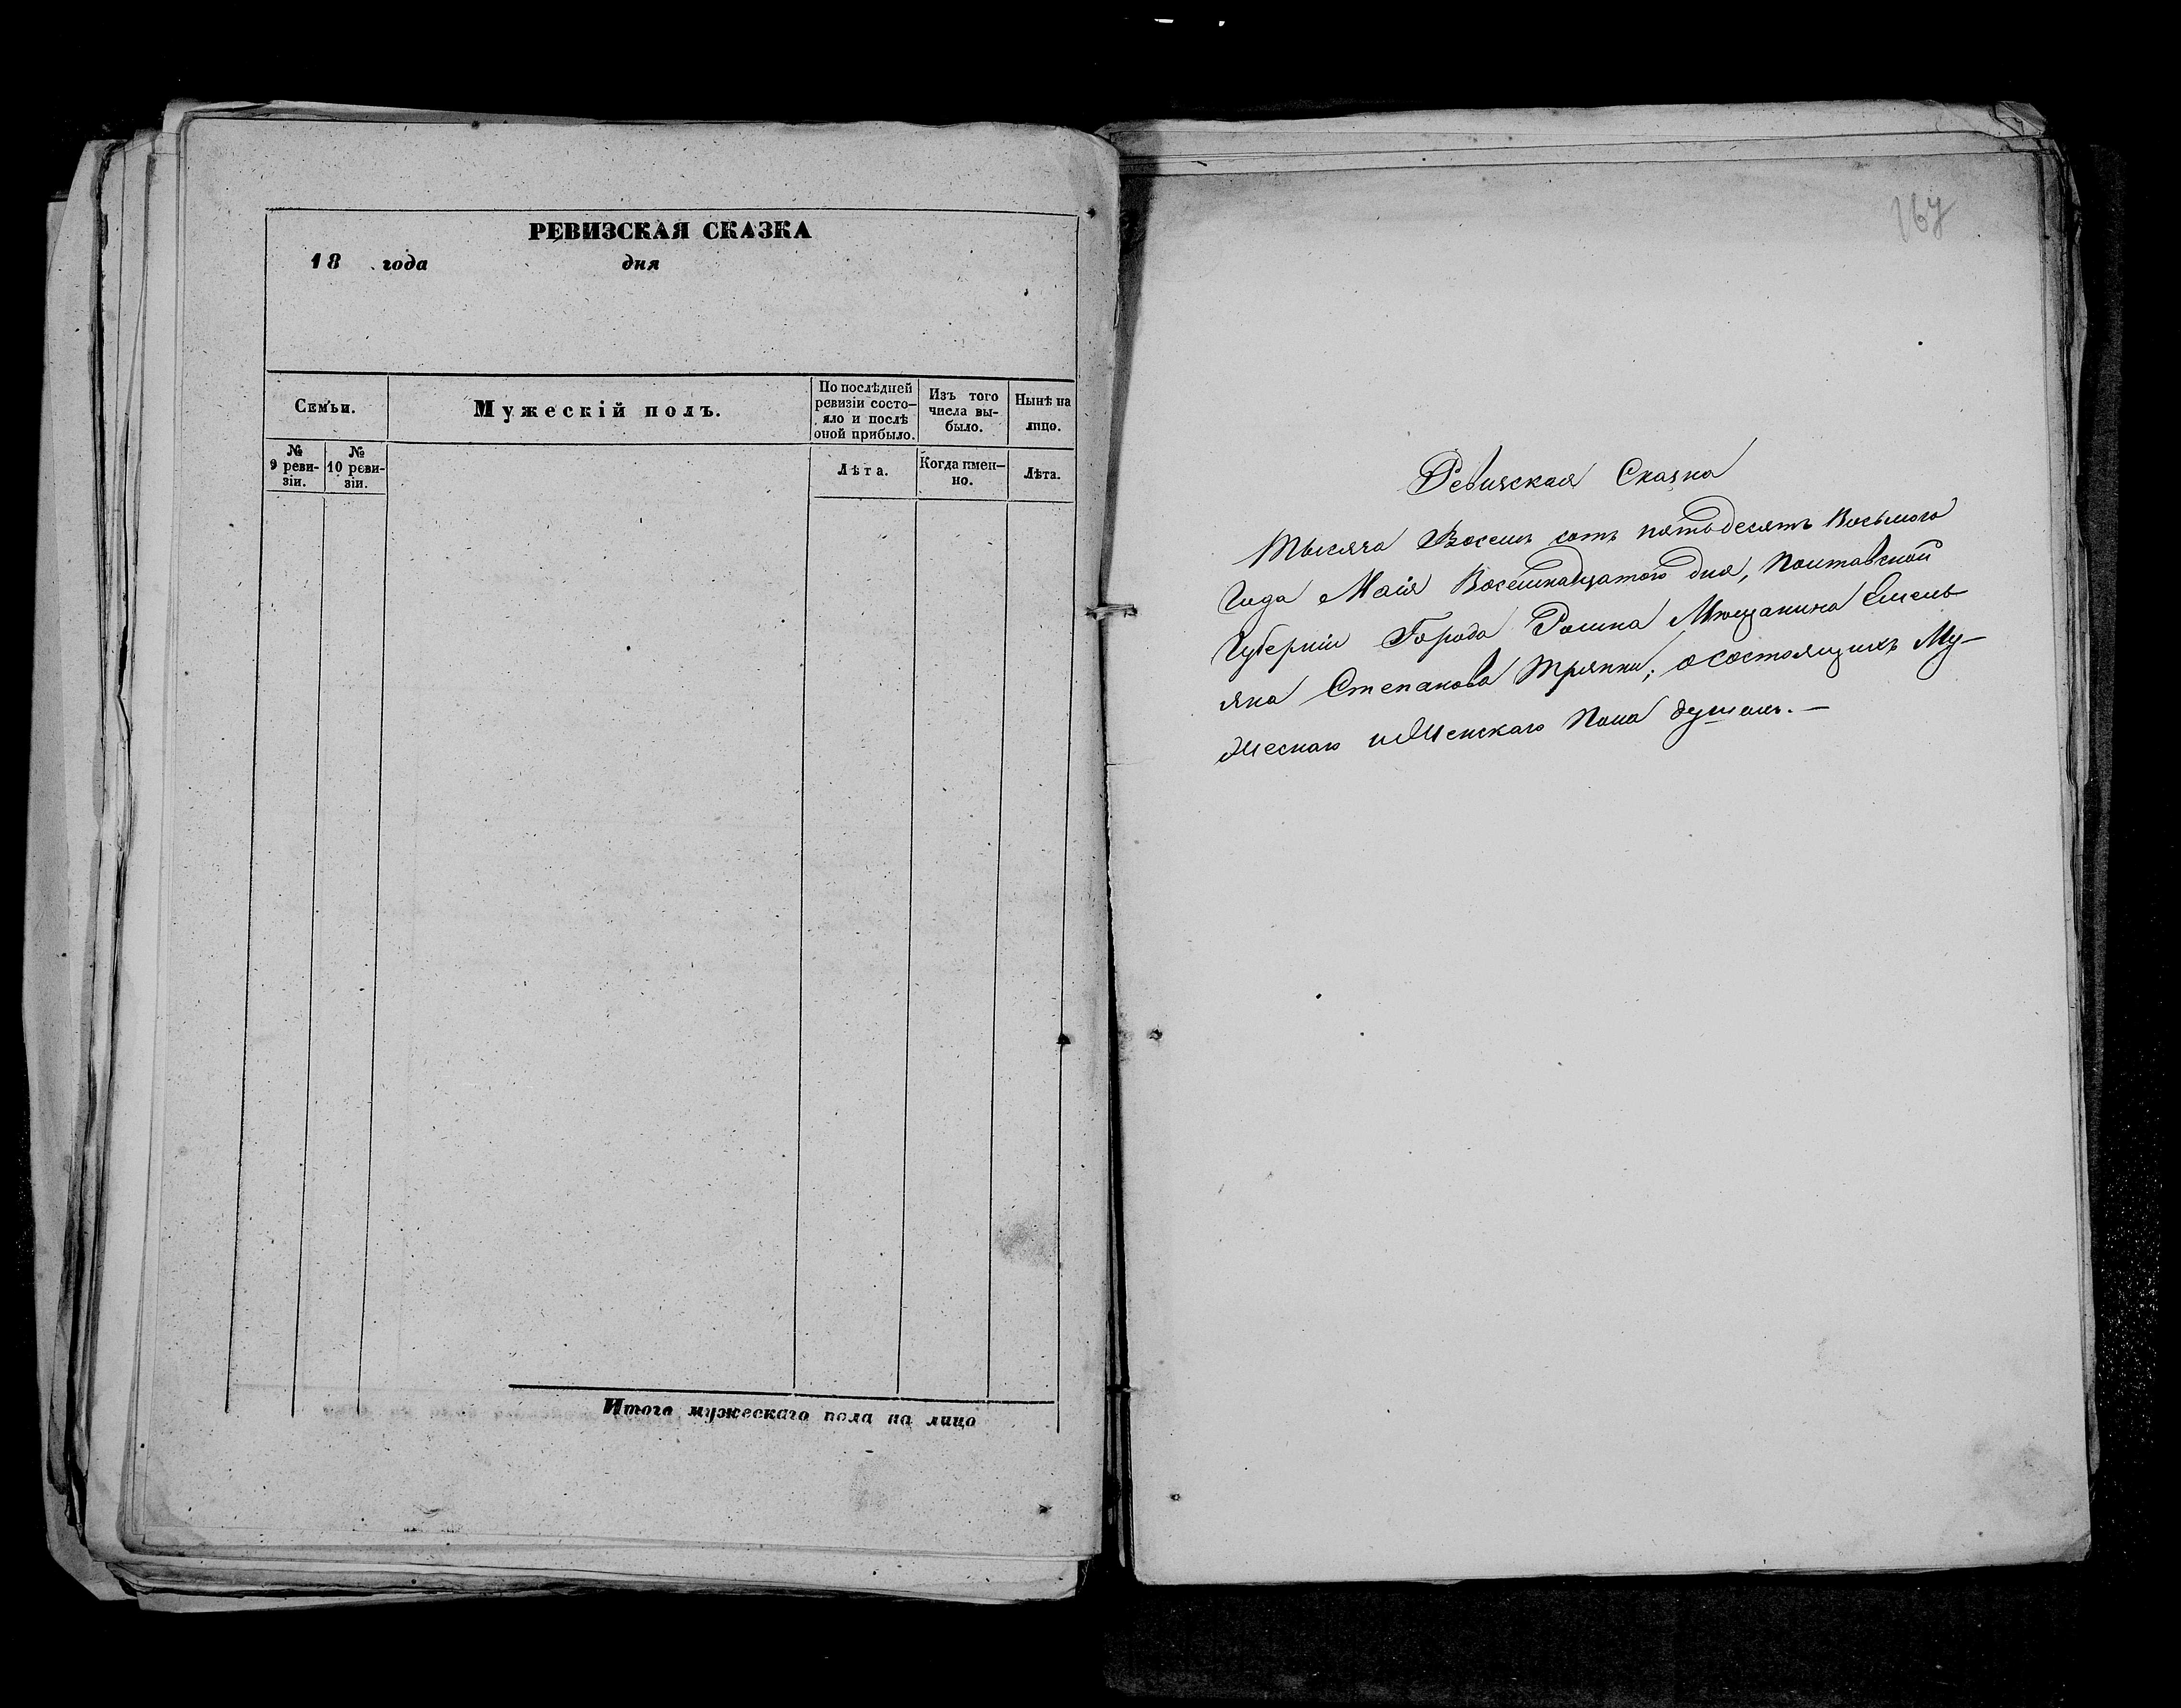 РЕВИЗСКАЯ СКАЗКА
18 года дня
Семьи.
Мужескій полъ.
По послѣдней
ревизіи состо-
яло и послѣ
оной прибыло.
Изъ того
числа вы-
было.
Нынѣ на
лицо.
№
9 реви-
зіи.
№
10 реви-
зіи.
Лѣта.
Когда имен-
но.
Лѣта.
Итого мужескаго пола на лицо
167
Ревизская Сказка
Тысяча Восемь сотъ пятьдесятъ Восьмого
Года Маія Восемнадцатого дня, Полтавской
Губерніи Города Ромна Мѣщанина Емель
яна Степанова Тряпки; о состоящихъ Му-
жескаго и Женскаго Пола душахъ.—